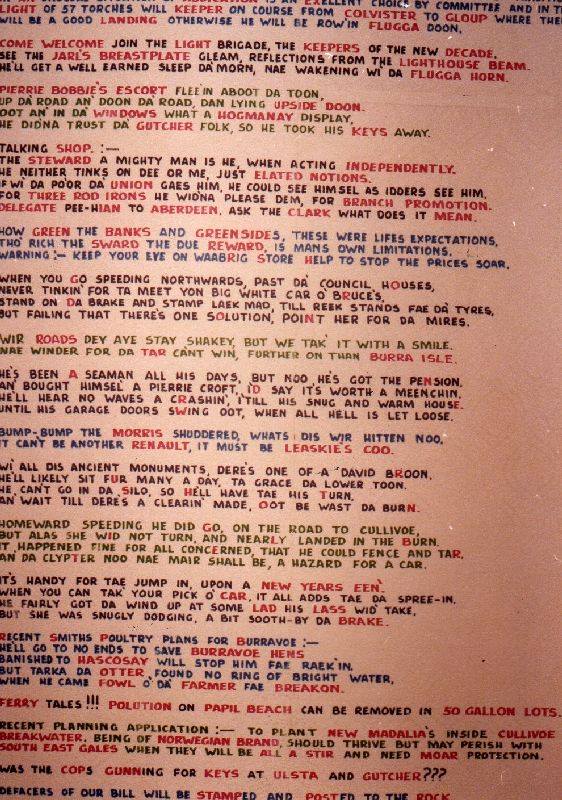 LIGHT OF 57 TORCHES WILL KEEPER ON COURSE FROM COLVISTER TO GLOUP WHERE THE
WILL BE A GOOD LANDING OTHERWISE HE WILL BE ROW'IN FLUGGA DOON.
COME WELCOME JOIN THE LIGHT BRIGADE, THE KEEPERS OF THE NEW DECADE,
SEE THE JARL'S BREASTPLATE GLEAM, REFLECTIONS FROM THE LIGHTHOUSE BEAM.
HE'LL GET A WELL EARNED SLEEP DA'MORN, NAE WAKENING WI' DA FLUGGA HORN.
PIERRIE BOBBIE'S ESCORT FLEE'IN ABOOT DA TOON,
UP DA'ROAD AN' DOON DA'ROAD, DAN LYING UPSIDE DOON.
OOT AN' IN DA' WINDOWS WHAT A HOGMANAY DISPLAY,
HE DIDNA TRUST DA' GUTCHER FOLK, SO HE TOOK HIS KEYS AWAY.
TALKING SHOP. :—
THE STEWARD A MIGHTY MAN IS HE, WHEN ACTING INDEPENDENTLY.
HE NEITHER TINKS ON DEE OR ME, JUST ELATED NOTIONS.
IF WI' DA PO'OR DA' UNION GAES HIM, HE COULD SEE HIMSEL AS IDDERS SEE HIM,
FOR THREE ROD IRONS HE WID'NA PLEASE DEM, FOR BRANCH PROMOTION.
DELEGATE PEE-HIAN TO ABERDEEN. ASK THE CLARK WHAT DOES IT MEAN.
HOW GREEN THE BANKS AND GREENSIDES, THESE WERE LIFES EXPECTATIONS,
THO' RICH THE SWARD THE DUE REWARD, IS MANS OWN LIMITATIONS.
WARNING:— KEEP YOUR EYE ON WAABRIG STORE HELP TO STOP THE PRICES SOAR.
WHEN YOU GO SPEEDING NORTHWARDS, PAST DA' COUNCIL HOUSES,
NEVER TINKIN' FOR TA MEET YON BIG WHITE CAR O' BRUCE'S,
STAND ON DA BRAKE AND STAMP LAEK MAD, TILL REEK STANDS FAE DA' TYRES,
BUT FAILING THAT THERE'S ONE SOLUTION, POINT HER FOR DA MIRES.
WIR ROADS DEY AYE STAY SHAKEY, BUT WE TAK' IT WITH A SMILE.
NAE WINDER FOR DA TAR CAN'T WIN, FURTHER ON THAN BURRA ISLE.
HE'S BEEN A SEAMAN ALL HIS DAYS, BUT NOO HE'S GOT THE PENSION,
AN' BOUGHT HIMSEL A PIERRIE CROFT, I'D SAY IT'S WORTH A MEENCHIN,
HE'LL HEAR NO WAVES A CRASHIN', I'TILL HIS SNUG AND WARM HOUSE.
UNTIL HIS GARAGE DOORS SWING OOT, WHEN ALL HELL IS LET LOOSE.
BUMP-BUMP THE MORRIS SHUDDERED, WHATS DIS WIR HITTEN NOO.
IT CAN'T BE ANOTHER RENAULT, IT MUST BE LEASKIE'S COO.
WI' ALL DIS ANCIENT MONUMENTS, DERE'S ONE OF A DAVID BROON,
HE'LL LIKELY SIT FUR MANY A DAY, TA GRACE DA LOWER TOON.
HE, CAN'T GO IN DA SILO, SO HE'LL HAVE TAE HIS TURN,
AN WAIT TILL DERE'S A CLEARIN' MADE, OOT BE WAST DA BURN.
HOMEWARD SPEEDING HE DID GO, ON THE ROAD TO CULLIVOE,
BUT ALAS SHE WID NOT TURN, AND NEARLY LANDED IN THE BURN.
IT HAPPENED FINE FOR ALL CONCERNED, THAT HE COULD FENCE AND TAR,
AN DA CLYPTER NOO NAE MAIR SHALL BE, A HAZARD FOR A CAR.
IT'S HANDY FOR TAE JUMP IN, UPON A NEW YEARS EEN'
WHEN YOU CAN TAK YOUR PICK O' CAR, IT ALL ADDS TAE DA SPREE-IN.
HE FAIRLY GOT DA WIND UP AT SOME LAD HIS LASS WID TAKE,
BUT SHE WAS SNUGLY DODGING, A BIT SOOTH-BY DA BRAKE.
RECENT SMITHS POULTRY PLANS FOR BURRAVOE :—
HE'LL GO TO NO ENDS TO SAVE BURRAVOE HENS
BANISHED TO HASCOSAY WILL STOP HIM FAE RAEK'IN.
BUT TARKA DA OTTER FOUND NO RING OF BRIGHT WATER,
WHEN HE CAME FOWL O' DA' FARMER FAE BREAKON.
FERRY TALES!!! POLUTION ON PAPIL BEACH CAN BE REMOVED IN 50 GALLON LOTS.
RECENT PLANNING APPLICATION :— TO PLANT NEW MADALIA'S INSIDE CULLIVOE
BREAKWATER, BEING OF NORWEGIAN BRAND, SHOULD THRIVE BUT MAY PERISH WITH
SOUTH EAST GALES WHEN THEY WILL BE ALL A STIR AND NEED MOAR PROTECTION.
WAS THE COPS GUNNING FOR KEYS AT ULSTA AND GUTCHER???
DEFACERS OF OUR BILL WILL BE STAMPED AND POSTED TO THE ROCK